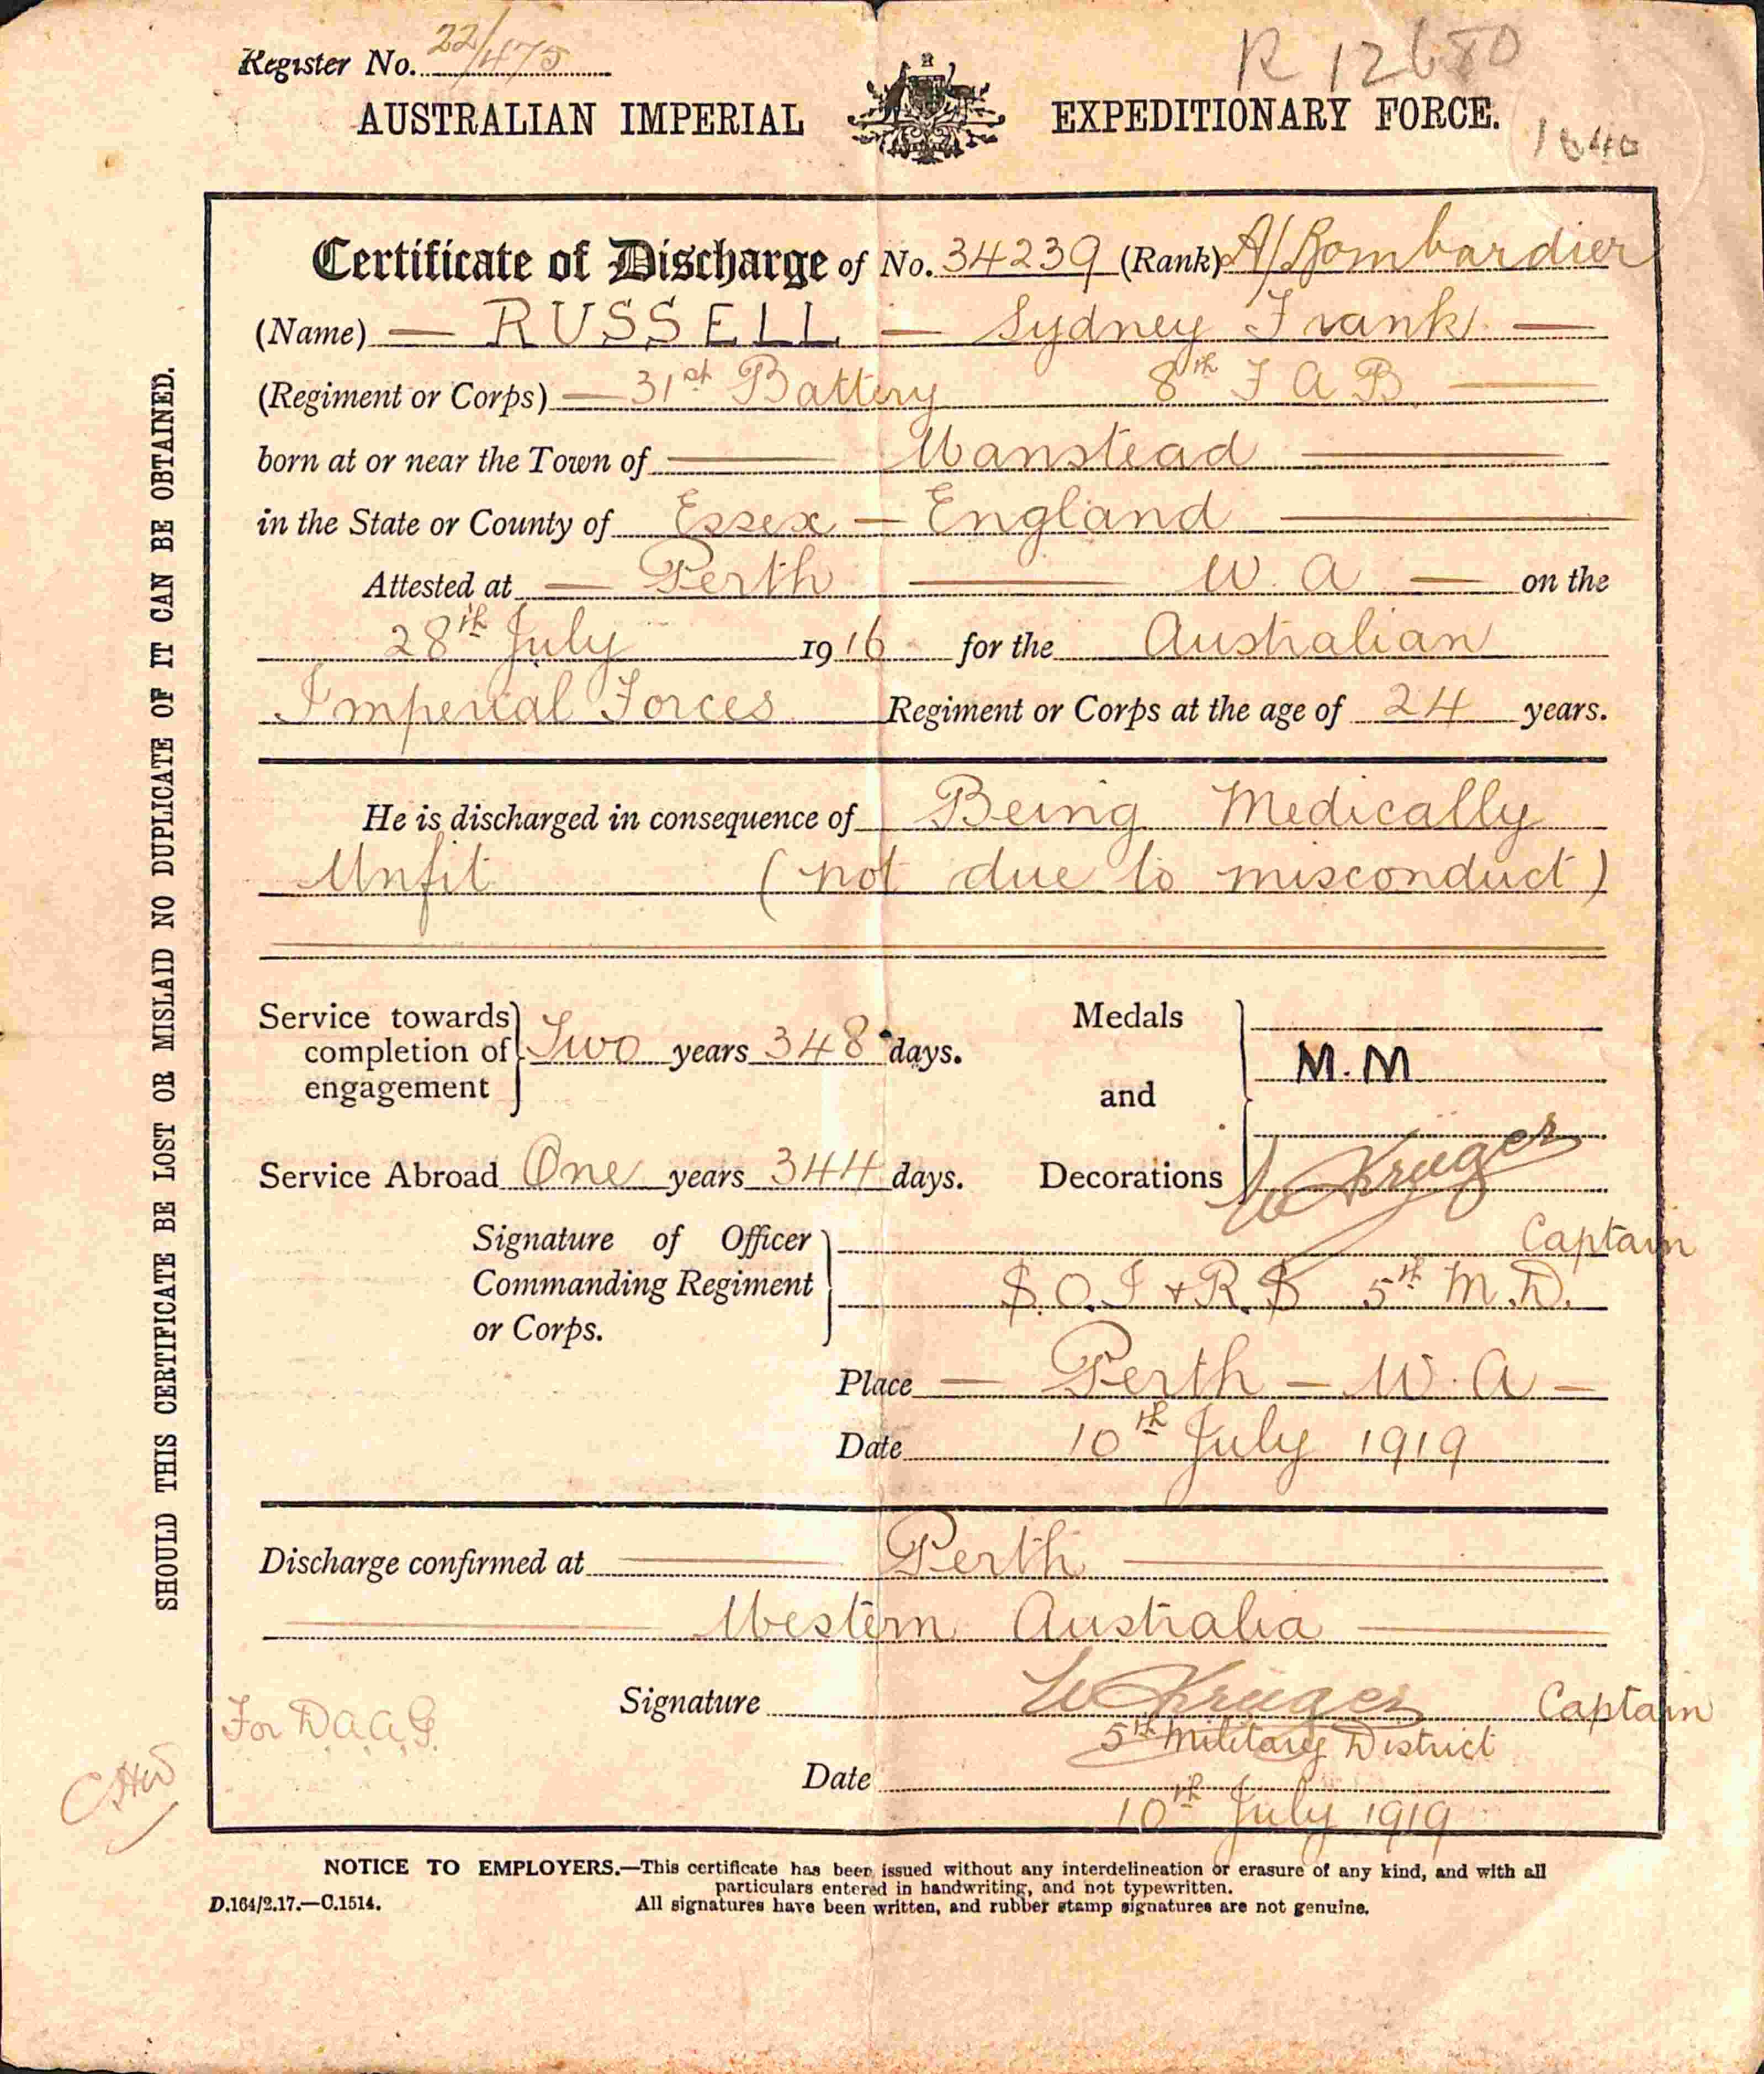 Register No. 22/475
R 12680
AUSTRALIAN IMPERIAL EXPEDITIONARY FORCE.
1640
Certificate of Discharge of No. 34239 (Rank) A/Bombardier
(Name) — RUSSELL — Sydney Frank —
(Regiment or Corps) — 31st Battery 8th F A B —
born at or near the Town of — Wanstead —
in the State or County of Essex — England —
Attested at — Perth — W. A — on the
28th July 1916 for the Australian
Imperial Forces Regiment or Corps at the age of 24 years.
He is discharged in consequence of Being Medically
Unfit (not due to misconduct)
Service towards completion of engagement Two years 348 days.
Medals and Decorations M.M
Service Abroad One years 344 days.
W Krüger
Signature of Officer Commanding Regiment or Corps.
Captain
S.O.I & R.S 5th M.D.
Place — Perth — W. A —
Date 10th July 1919
Discharge confirmed at — Perth —
— Western Australia —
Signature W Krüger Captain
For D.A.A.G.
5th Military District
Date 10th July 1919
NOTICE TO EMPLOYERS.—This certificate has been issued without any interdelineation or erasure of any kind, and with all
particulars entered in handwriting, and not typewritten.
D.164/2.17.—C.1514.
All signatures have been written, and rubber stamp signatures are not genuine.
SHOULD THIS CERTIFICATE BE LOST OR MISLAID NO DUPLICATE OF IT CAN BE OBTAINED.